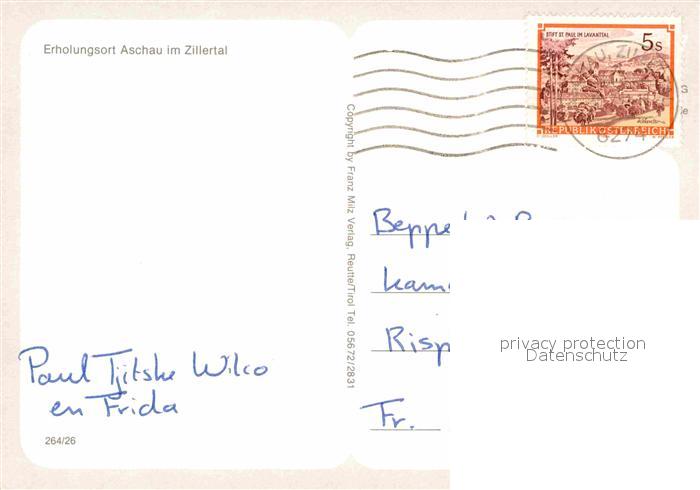 Erholungsort Aschau im Zillertal
STIFT ST. PAUL IM LAVANTTAL
5s
REPUBLIK ÖSTERREICH
6274
Copyright by Franz Milz Verlag, Reutte/Tirol Tel. 05672/2831
Beppe
Kam
Risp
Fr.
privacy protection
Datenschutz
Paul Tjitske Wilco
en Frida
264/26